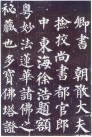 卿書 朝散大夫
撿挍尚書都官郎
中東海徐浩題額
粵妙法蓮華諸佛之
秘藏也多寶佛塔證